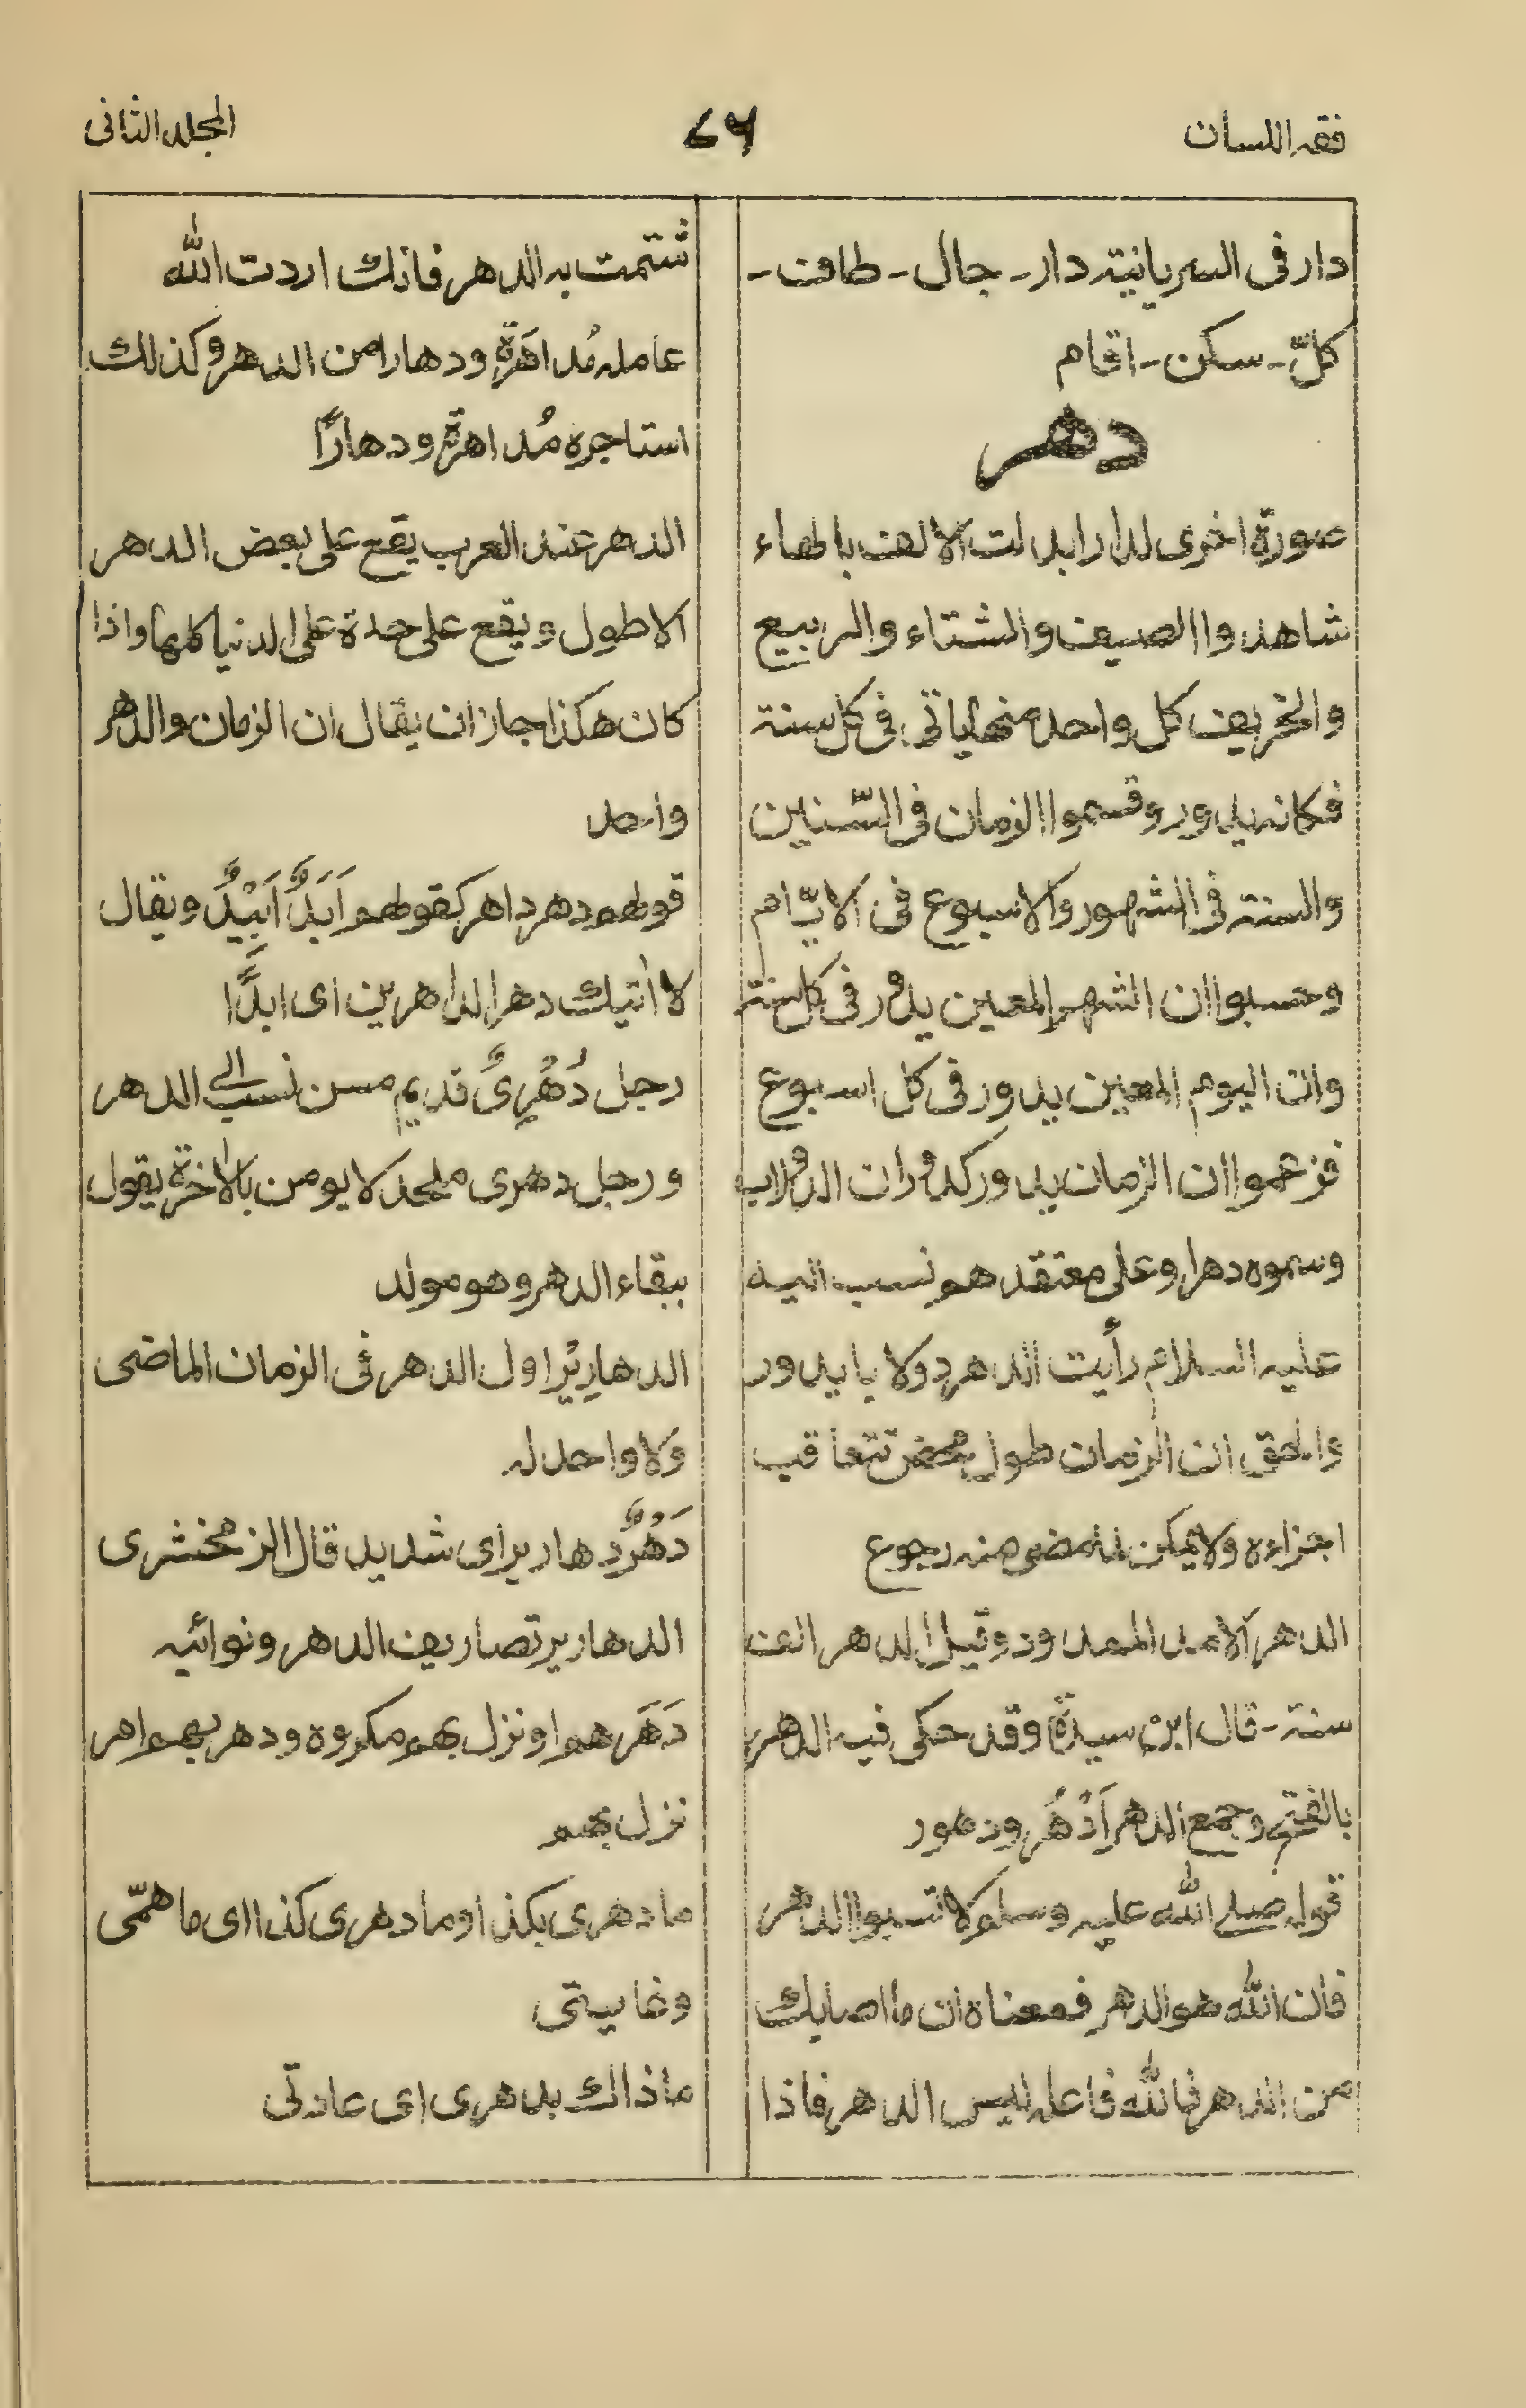 فقہ اللسان
۷۶
المجلد الثانی
دار فی السریانیۃ دار - جال - طاف -
کلّ - سکن - اقام
دھر
صورۃ اخری لدار ابدلت الالف بالھاء
شاھدوا الصیف والشتاء والربیع
والخریف کل واحد منھا یاتی فی کل سنۃ
فکانہ یدور وقسموا الزمان فی السّنین
والسنۃ فی الشھور والاسبوع فی الایّام
وحسبوا ان الشھر المعین یدور فی کل سنۃ
وان الیوم المعین یدور فی کل اسبوع
فزعموا ان الزمان یدور کدوران الدولاب
وسموہ دھرا وعلی معتقدھم نسب الیہ
علیہ السلام رأیت الدھر دولابا یدور
والحق ان الزمان طول محض تتعاقب
اجزاءہ ولا یمکن لما مضی منہ رجوع
الدھر الامد الممدود وقیل الدھر الف
سنۃ - قال ابن سیدۃ وقد حکی فیہ الدھر
بالفتح وجمع الدھر اَدْھُر ودھور
قولہ صلی اللہ علیہ وسلم لا تسبوا الدھر
فان اللہ ھو الدھر فمعناہ ان ما اصابک
من الدھر فاللہ فاعلہ لیس الدھر فاذا
شتمت بہ الدھر فانک اردت اللہ
عاملہ مُداھَرۃ ودھارا من الدھر وکذلک
استاجرہ مُداھرۃ ودھارًا
الدھر عند العرب یقع علی بعض الدھر
الاطول ویقع علی حدۃ علی الدنیا کلھا واذا
کان ھکذا جاز ان یقال ان الزمان والدھر
واحد
قولھم دھر داھر کقولھم اَبَدٌ اَبِیْدٌ ویقال
لا اٰتیک دھر الداھرین ای ابدًا
رجل دُھْرِیٌّ قدیم مسن نسب الی الدھر
ورجل دھری ملحد لا یومن بالاٰخرۃ یقول
ببقاء الدھر وھو مولد
الدھارِیْر اول الدھر فی الزمان الماضی
ولا واحد لہ
دَھْرٌ دھاریر ای شدید قال الزمخشری
الدھاریر تصاریف الدھر ونوائبہ
دَھَرھم او نزل بھم مکروہ ودھر بھم امر
نزل بھم
ما دھری بکذا وما دھری کذا ای ما ھمّی
وغایتی
ما ذاک بدھری ای عادتی